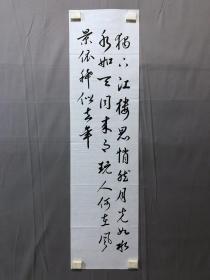 獨上江樓思悄然月光如水
水如天同来月玩人何在風
景依稀似去年